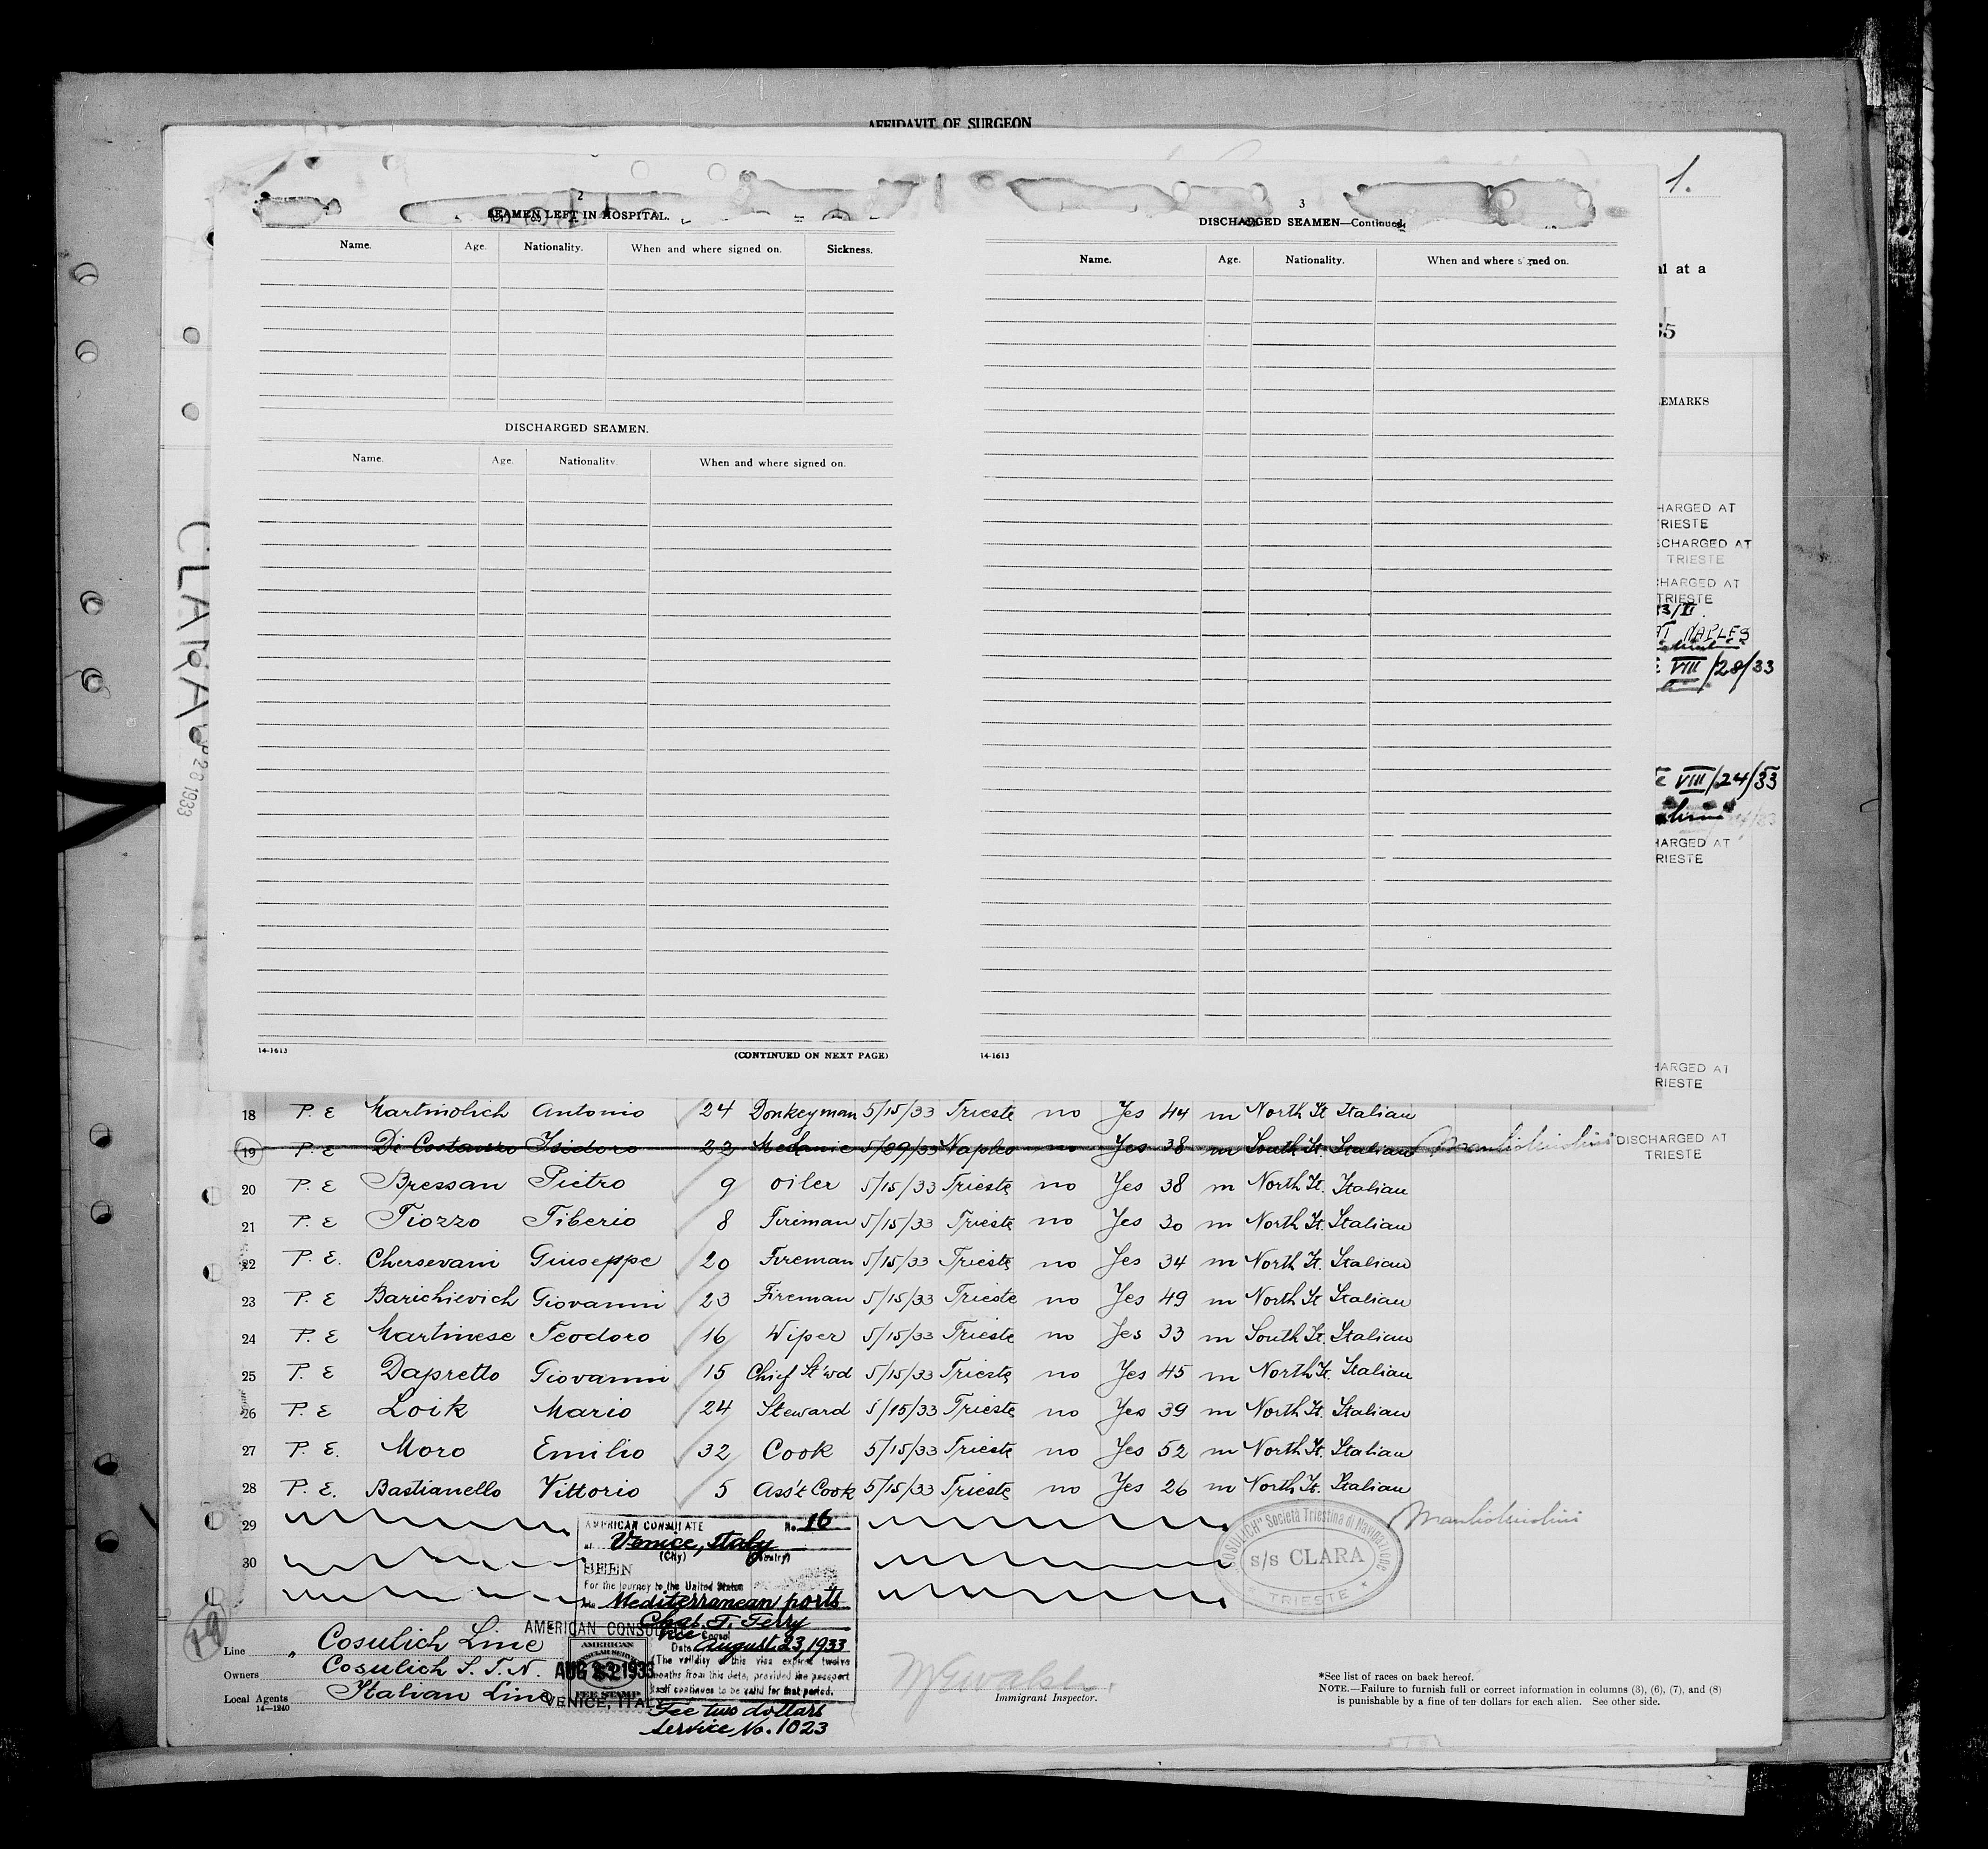 AFFIDAVIT OF SURGEON
1.
2
SEAMEN LEFT IN HOSPITAL.
Name. Age. Nationality. When and where signed on. Sickness.
DISCHARGED SEAMEN.
Name. Age. Nationality. When and where signed on.
14-1613
(CONTINUED ON NEXT PAGE)
3
DISCHARGED SEAMEN—Continued.
Name. Age. Nationality. When and where signed on.
14-1613
al at a
35
EMARKS
HARGED AT
TRIESTE
SCHARGED AT
TRIESTE
CHARGED AT
TRIESTE
33/II
AT NAPLES
VIII/28/33
VIII/24/33
HARGED AT
RIESTE
HARGED AT
RIESTE
CLARA
28 1933
18 P. E Martinolich Antonio 24 Donkeyman 5/15/33 Trieste no Yes 44 m North It Italian
19 P. E Di Costanzo Isidoro 22 Mechanic 5/29/33 Naples no Yes 38 m South It. Italian DISCHARGED AT
TRIESTE
20 P. E Bressan Pietro 9 oiler 5/15/33 Trieste no Yes 38 m North It. Italian
21 P. E Tiozzo Tiberio 8 Fireman 5/15/33 Trieste no Yes 30 m North It. Italian
22 P. E. Chersevani Giuseppe 20 Fireman 5/15/33 Trieste no Yes 34 m North It. Italian
23 P. E Barichievich Giovanni 23 Fireman 5/15/33 Trieste no Yes 49 m North It Italian
24 P. E Martinese Teodoro 16 Wiper 5/15/33 Trieste no Yes 33 m South It. Italian
25 P. E Dapretto Giovanni 15 Chief St'wd 5/15/33 Trieste no Yes 45 m North It. Italian
26 P. E Loik Mario 24 Steward 5/15/33 Trieste no Yes 39 m North It. Italian
27 P. E. Moro Emilio 32 Cook 5/15/33 Trieste no Yes 52 m North It. Italian
28 P. E. Bastianello Vittorio 5 Ass't Cook 5/15/33 Trieste no Yes 26 m North It. Italian
29
30
AMERICAN CONSULATE No. 16
at Venice, Italy
(City) (Country)
SEEN
For the journey to the United States
via Mediterranean ports
Chas. T. Terry
Vice Consul
Date August 23, 1933
(The validity of this visa expires twelve
months from this date, provided the passport
itself continues to be valid for that period.
Fee two dollars
Service No. 1023
AMERICAN CONSUL
AMERICAN
CONSULAR SERVICE
FEE STAMP
AUG 23 1933
VENICE, ITALY
"COSULICH" Società Triestina di Navigazione
s/s CLARA
TRIESTE
19
Line " Cosulich Line
Owners Cosulich S. T. N.
Local Agents Italian Line
14—1240
Immigrant Inspector.
*See list of races on back hereof.
NOTE.—Failure to furnish full or correct information in columns (3), (6), (7), and (8)
is punishable by a fine of ten dollars for each alien. See other side.